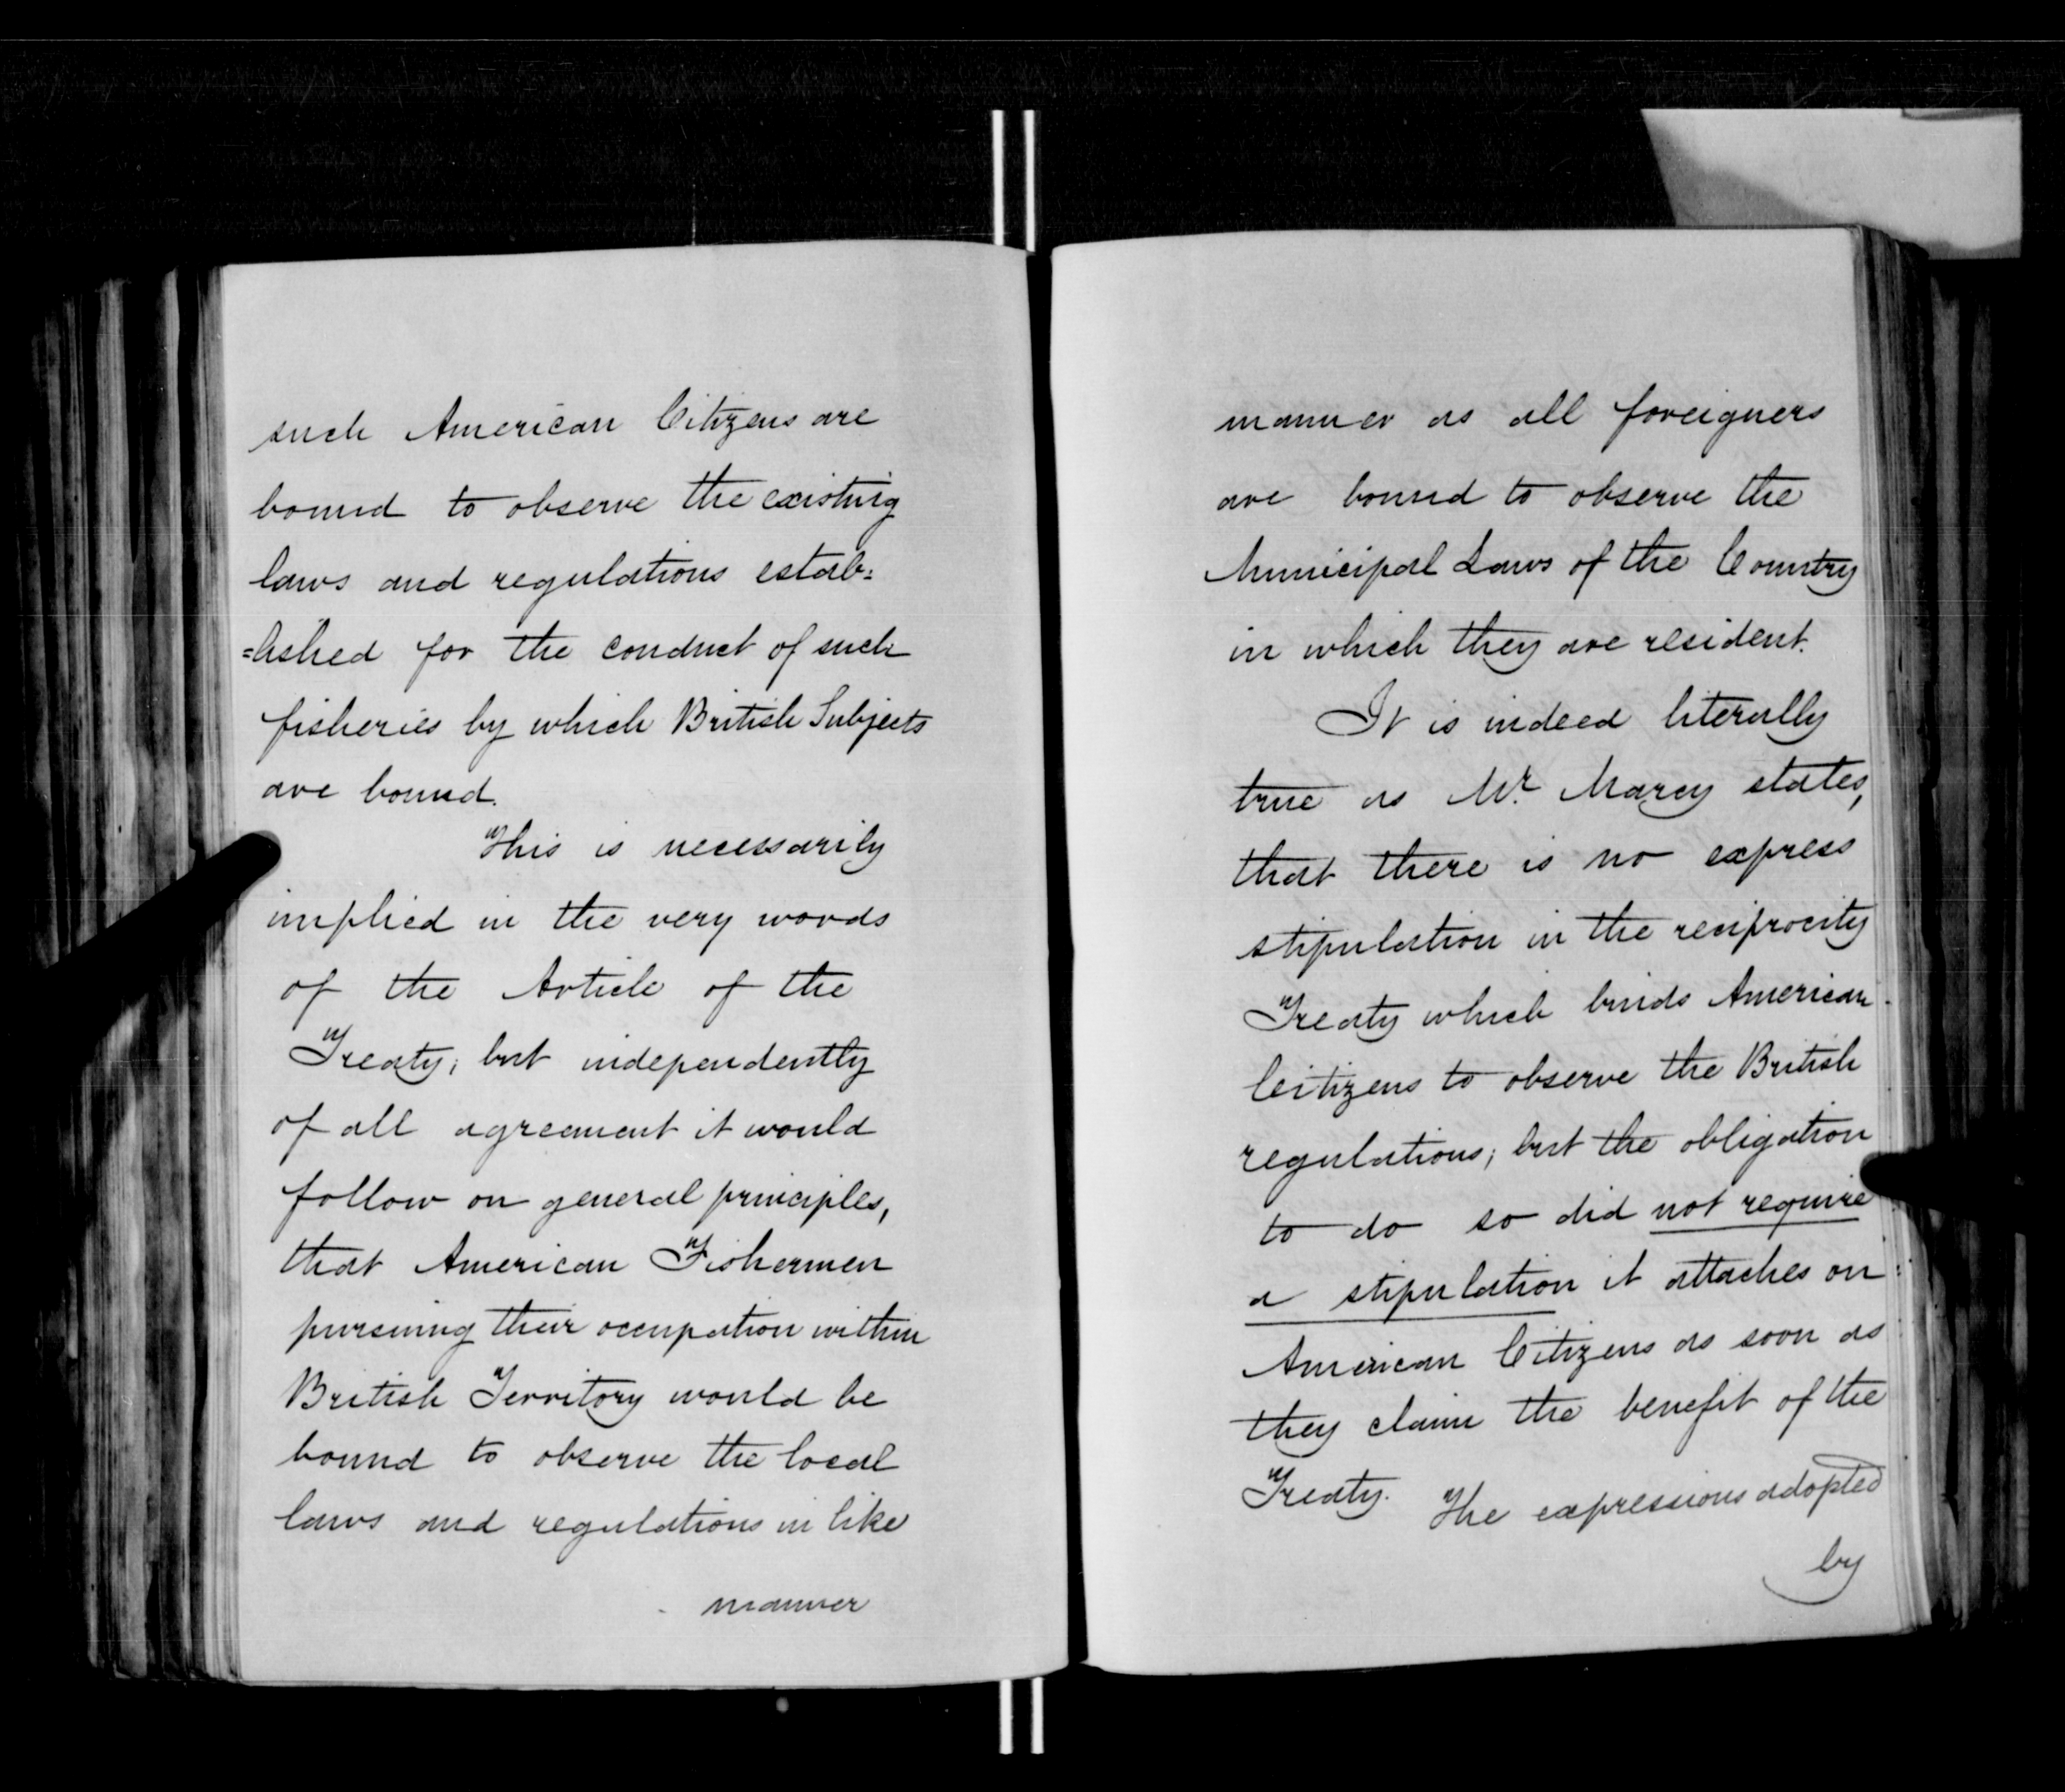 such American Citizens are
bound to observe the existing
laws and regulations estab=
=lished for the conduct of such
fisheries by which British Subjects
are bound.
This is necessarily
implied in the very words
of the Article of the
Treaty; but independently
of all agreement it would
follow on general principles,
that American Fishermen
pursuing their occupation within
British Territory would be
bound to observe the local
laws and regulations in like
manner
manner as all foreigners
are bound to observe the
Municipal Laws of the Country
in which they are resident.
It is indeed literally
true as Mr. Marcy states,
that there is no express
stipulation in the reciprocity
Treaty which binds American
Citizens to observe the British
regulations; but the obligation
to do so did not require
a stipulation it attaches on
American Citizens as soon as
they claim the benefit of the
Treaty. The expressions adopted
by